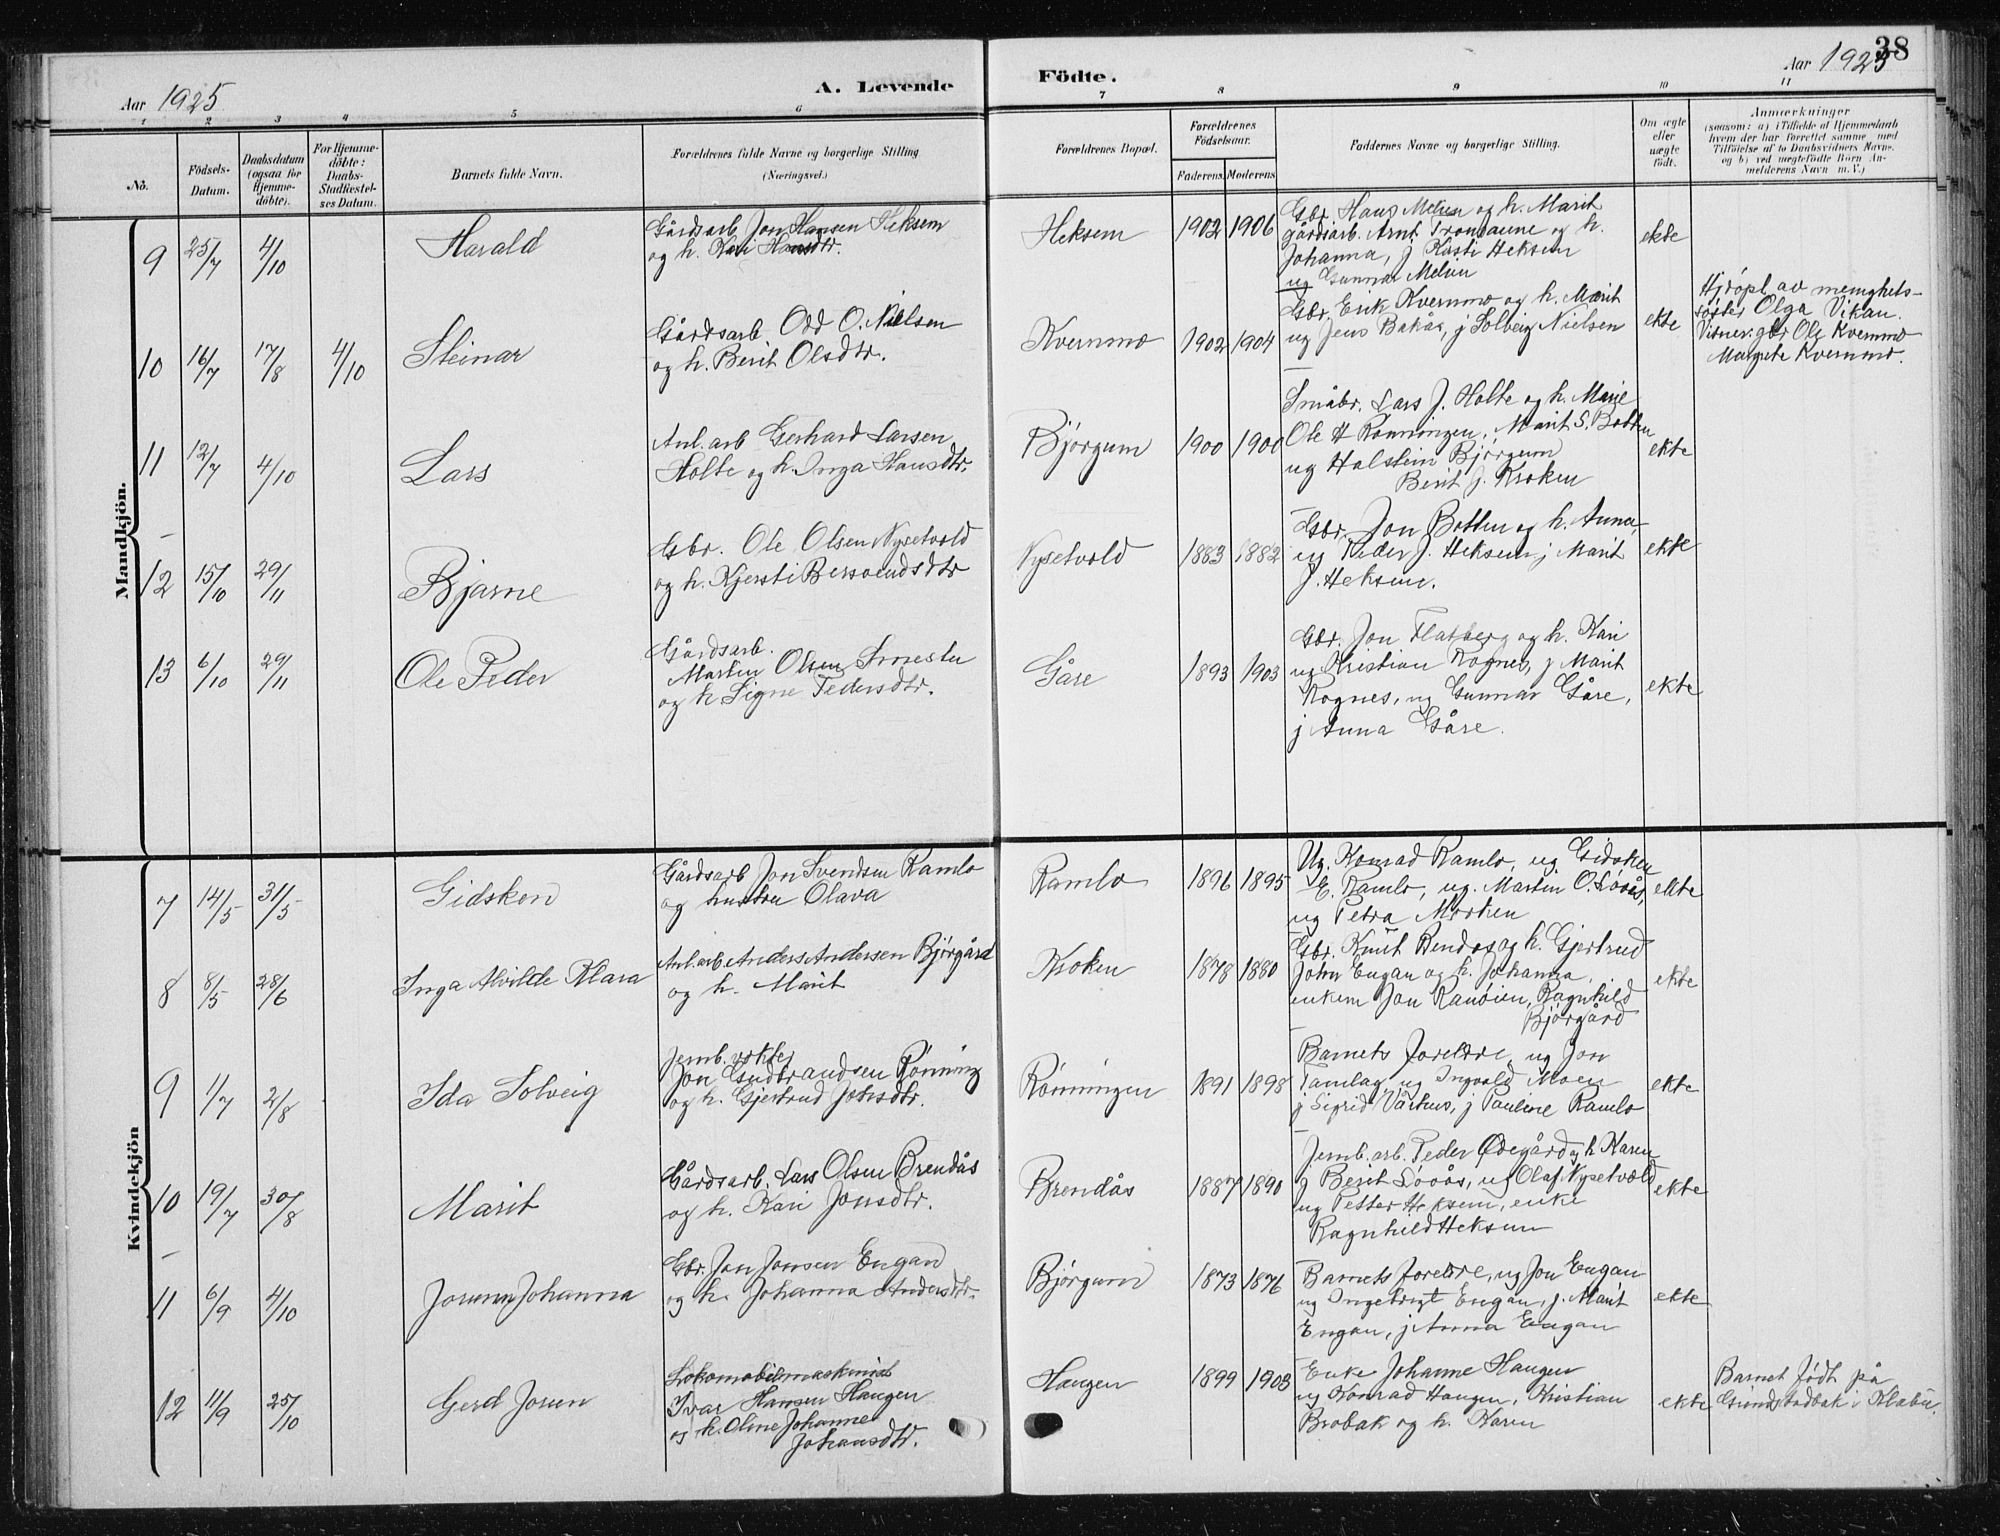 Aar 1925
A. Levende
Födte.
Aar 1925
38
1 2 3 4 5 6 7 8 9 10 11
No.
Födsels-
Datum.
Daabsdatum
(ogsaa for
Hjemme-
döbte).
For Hjemme-
döbte:
Daabs-
Stadfæstel-
ses Datum.
Barnets fulde Navn.
Forældrenes fulde Navne og borgerlige Stilling
(Næringsvei.)
Forældrenes Bopæl.
Forældrenes
Födselsaar.
Faderens. Moderens.
Faddernes Navne og borgerlige Stilling.
Om ægte
eller
uægte
födt.
Anmærkninger
(saasom: a) i Tilfælde af Hjemmedaab
hvem der har forrettet samme med
Tilföielse af to Daabsvidners Navne.
og b) ved uægtefödte Börn An-
melderens Navn m. V.)
Mandkjön.
9 25/7 4/10 Harald
Gårdsarb. Jon Hansen Heksem
og h. Kari Hansdtr.
Heksem 1902 1906
Gbr. Hans Melien og h. Marit
gårdsarb. Arnt Trondaune og h.
Johanna, j Kasti Heksem
ug Gunnar Melien
ekte
10 16/7 17/8 4/10 Steinar
Gårdsarb Odd O. Nielsen
og h. Berit Olsdtr.
Kvernmo 1902 1904
Gbr. Erik Kvernmo og h. Marit
ug Jens Bakås, j Solveig Nielsen
ekte
Hjdøpt av menighets-
søster Olga Vikan.
Vitner: gbr Ole Kvernmo
Margrete Kvernmo.
11 12/7 4/10 Lars
Anl.arb Gerhard Larsen
Holte og h. Inga Hansdtr.
Bjørgum 1900 1900
Småbr. Lars J. Holte og h. Marie
Ole H Rønningen, Marit S. Botten
ug Halstein Bjørgum
Berit J. Kroken
ekte
12 15/10 29/11 Bjarne
Gbr. Ole Olsen Nysetvold
og h. Kjersti Bersvendsdtr
Nysetvold 1883 1882
Gbr. Jon Botten og h. Anna,
ug Peder J. Heksem j Marit
J. Heksem.
ekte
13 6/10 29/11 Ole Peder
Gårdsarb.
Martin Olsen Smestu
og h Signe Pedersdtr.
Gåre 1893 1903
Gbr. Jon Flatberg og h. Kari
ug Kristian Rognes, j Marit
Rognes, ug Gunnar Gåre,
j Anna Gåre.
ekte
Kvindekjön
7 14/5 31/5 Gidsken
Gårdsarb Jon Svendsen Ramlo
og hustru Olava
Ramlo 1896 1895
Ug. Konrad Ramlo, ug Gidsken
E. Ramlo, ug. Martin O. Løvås,
ug Petra Morken
ekte
8 8/5 28/6 Inga Alvilde Klara
Anl.arb Anders Andersen Bjørgård
og h. Marit
Kroken 1878 1880
Gbr. Knut Rendos og h. Gjertrud
John Engan og h. Johanna,
enkem Jon Ranøien, Ragnhild
Bjørgård
ekte
9 1/7 2/8 Ida Solveig
Jernb. vokter
Jon Gudbrandsen Rønning
og h. Gjertrud Johnsdtr.
Rønningen 1891 1898
Barnets foreldre, ug Jon
Tamlag, ug Ingvald Moen
j Sigrid Vårhus, j Pauline Ramlo
ekte
10 19/7 30/8 Marit
Gårdsarb. Lars Olsen Brendås
og h. Kari Jonsdtr.
Brendås 1887 1890
Jernb.arb. Peder Ødegård og h Karen
j Berit Løvås, ug Olaf Nysetvold
ug Petter Heksem, enke
Ragnhild Heksem
ekte
11 6/9 4/10 Jorunn Johanna
Gbr. Jon Jonsen Engan
og h. Johanna Andersdtr.
Bjørgum 1873 1876
Barnets foreldre, ug Jon Engan
ug Ingebrigt Engan, j. Marit
Engan, j Anna Engan
ekte
12 11/9 25/10 Gerd Jorun
Lokomobilmaskinist
Ivar Hansen Haugen
og h. Oline Johanne
Johansdtr.
Haugen 1899 1903
Enke Johanne Haugen
ug Konrad Haugen, Kristian
Brobak og h. Karen
ekte
Barnet født på
Grendstadbak i Klæbu.